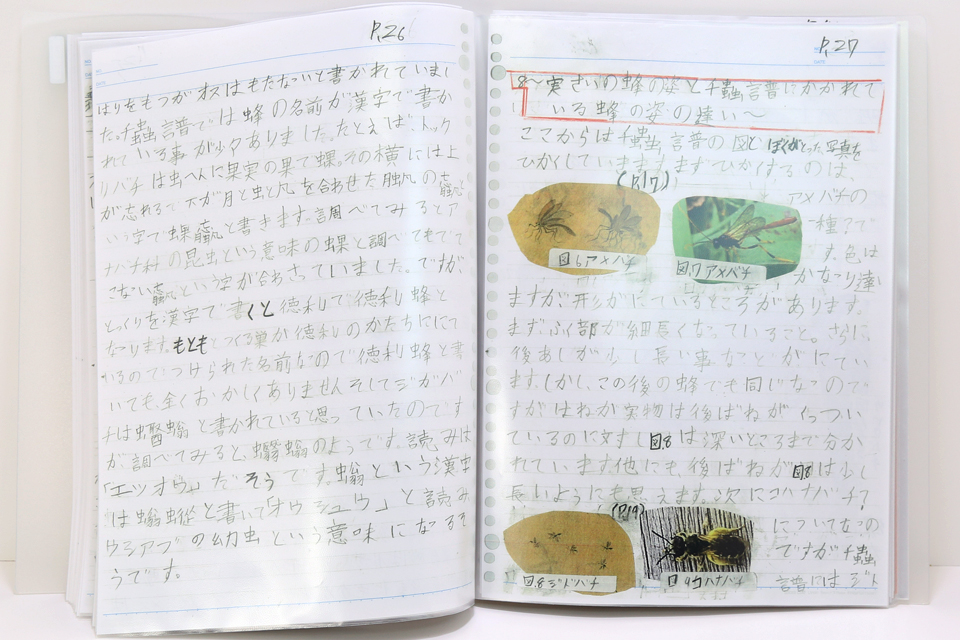 P.26
はりをもつがオスはもたないと書かれていまし
た。千蟲譜では蜂の名前が漢字で書か
れている事が少々ありました。たとえば、トック
リバチは虫へんに果実の果で蜾。その横には上
が忘れるで下が月と虫と凡を合わせた
いう字で蜾蠃と書きます。調べてみるとア
ナバチ科の昆虫という意味の蜾と調べてもでて
こない蠃という字が合わさっていました。ですが、
とっくりを漢字で書くと徳利で徳利蜂と
なります。もともとつくる巣が徳利のかたちににて
いるのでつけられた名前なので徳利蜂と書
いても、全くおかしくありません。そしてジガバ
チは蠮螉と書かれていると思っていたのです
が、調べてみると、蠮螉のようです。読みは
「エツオウ」だそうです。螉という漢字
は螉䗥と書いて「オウシュウ」と読み
ウシアブの幼虫という意味になるそ
うです。
P.27
8〜実さいの蜂の姿と千蟲譜にかかれて
いる蜂の姿の違い〜
ここからは千蟲譜の図とぼくがとった写真を
ひかくしていきます。まずひかくするのは、
(P.17)
アメバチの
一種です
す。色は
かなり違い
図.6 アメバチ
図.7 アメバチ
ますが、形がにているところがあります。
まず、ふく部が細長くなっていること。さらに、
後あしが少し長い事などがにてい
ます。しかし、この後の蜂でも同じなので
すがはねが実物は後ばねがくっつい
ているのに対すし図.8は深いところまで分か
れています。他にも、後ばねが図.8は少し
長いようにも思えます。次にコハナバチ？
(P.19)
についてなの
ですが千蟲
譜にはジド
図.8 ジドバチ
図.9 コハナバチ